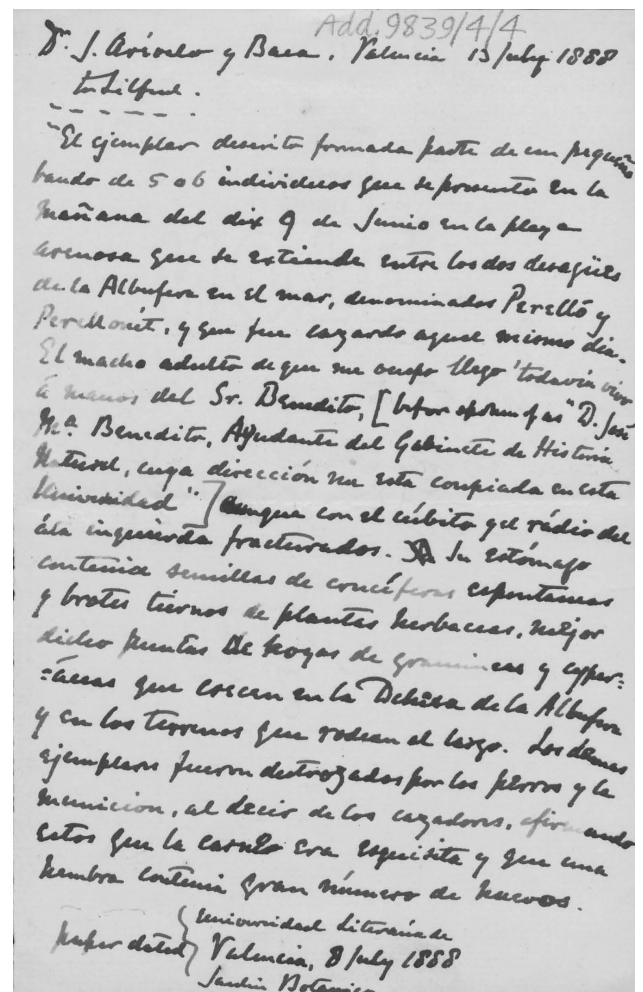 Add. 9839/4/4
Dr. J. Arévalo y Baca, Valencia 13 July 1888
to Lilford.
"El ejemplar descrito formada parte de em pequeño
bando de 5 o 6 individuos que se presento en la
mañana del dix 9 de Junio en la playa
arenosa que se extiende entre los dos desagües
de la Albufera en el mar, denominados Perelló y
Perellonét, y que fue cazardo aquel mismo dia.
El macho adulto de que me ocupo llego todavia vivo
á manos del Sr. Benedito, [before spoken of as "D. José
Ma. Benedito, Ayudante del Gabinete de Historia
Natural, cuya dirección me esta confiada en esta
Universidad"] aunque con el cúbito y el rádio del
ála inquierda fracturados. Su estómago
contenia semillas de crucíferas espontaneas
y brotes tiernos de plantas herbaceas, mejor
dicho puntas de hojas de gramineas y cyper=
=áceas que crecen en la Dehesa de la Albufera
y en los terrenos que rodean al largo. Los demas
ejemplares fueron destrozados por los perros y la
municion, al decir de los cazadores, afirmando
estos que la carne era esquisita y que una
hembra contenia gran número de huevos.
paper dated { Universidad Literária de
Valencia, 8 July 1888
Jardin Botanico